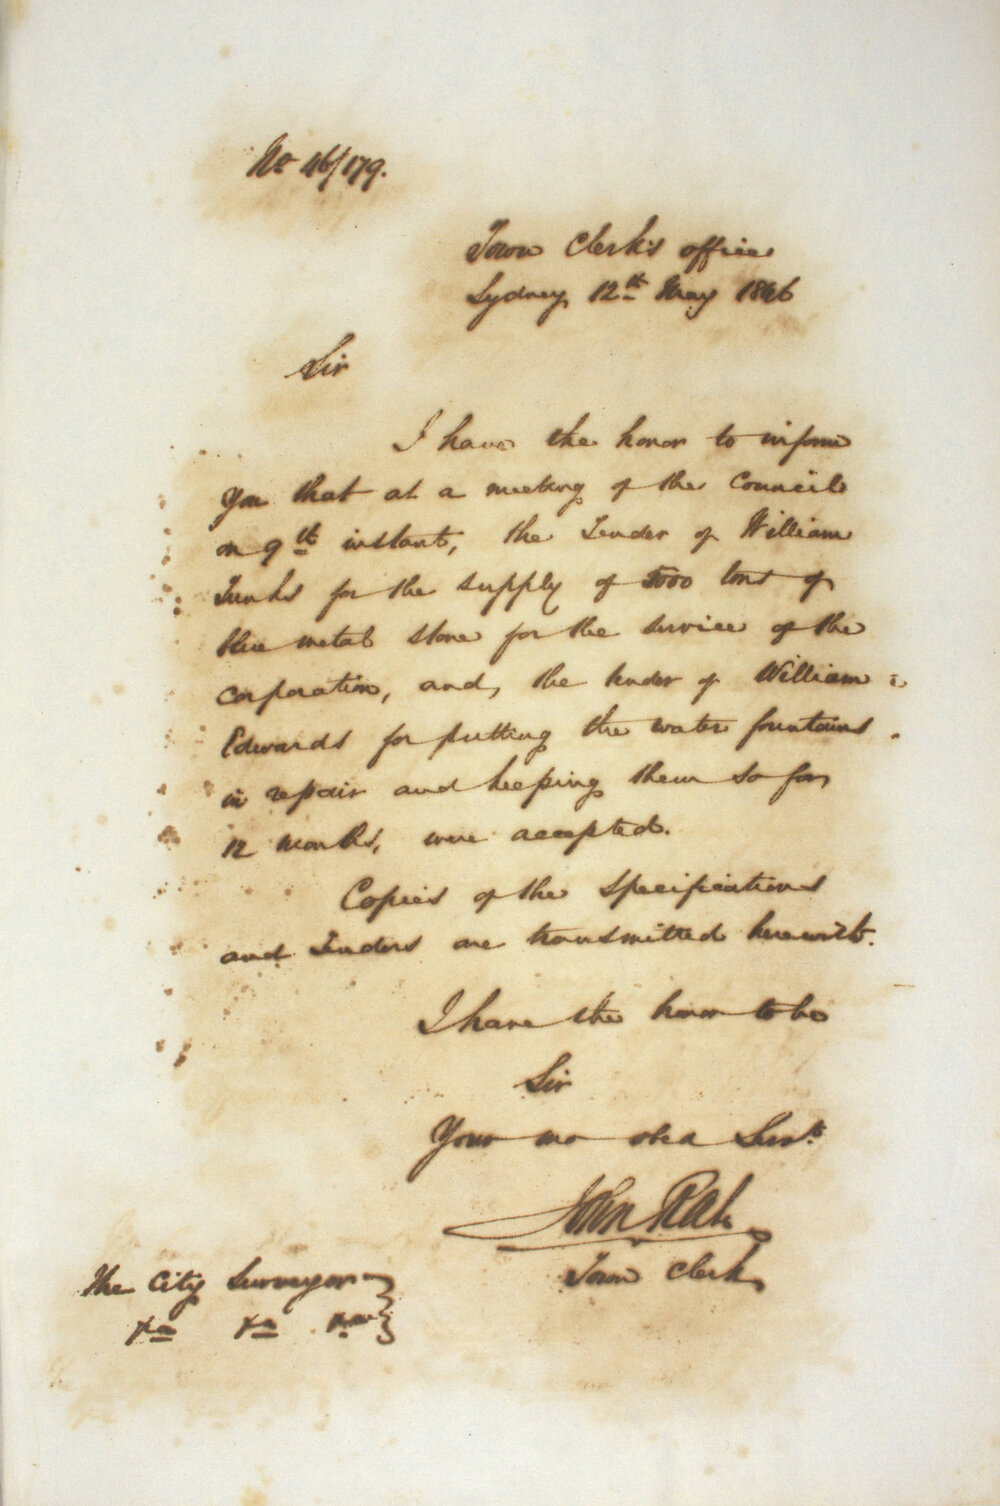 No 46/179.
Town Clerk's office
Sydney 12th May 1846
Sir
I have the honor to inform
you that at a meeting of the Council
on 9th instant, the Tender of William
Tunks for the supply of 5000 tons of
blue metal stone for the service of the
corporation, and, the tender of William
Edwards for putting the water fountains
in repair and keeping them so for
12 months, were accepted.
Copies of the specifications
and Tenders are transmitted herewith.
I have the honor to be
Sir
Your mo obd Servt
John Rae
Town Clerk
The City Surveyor